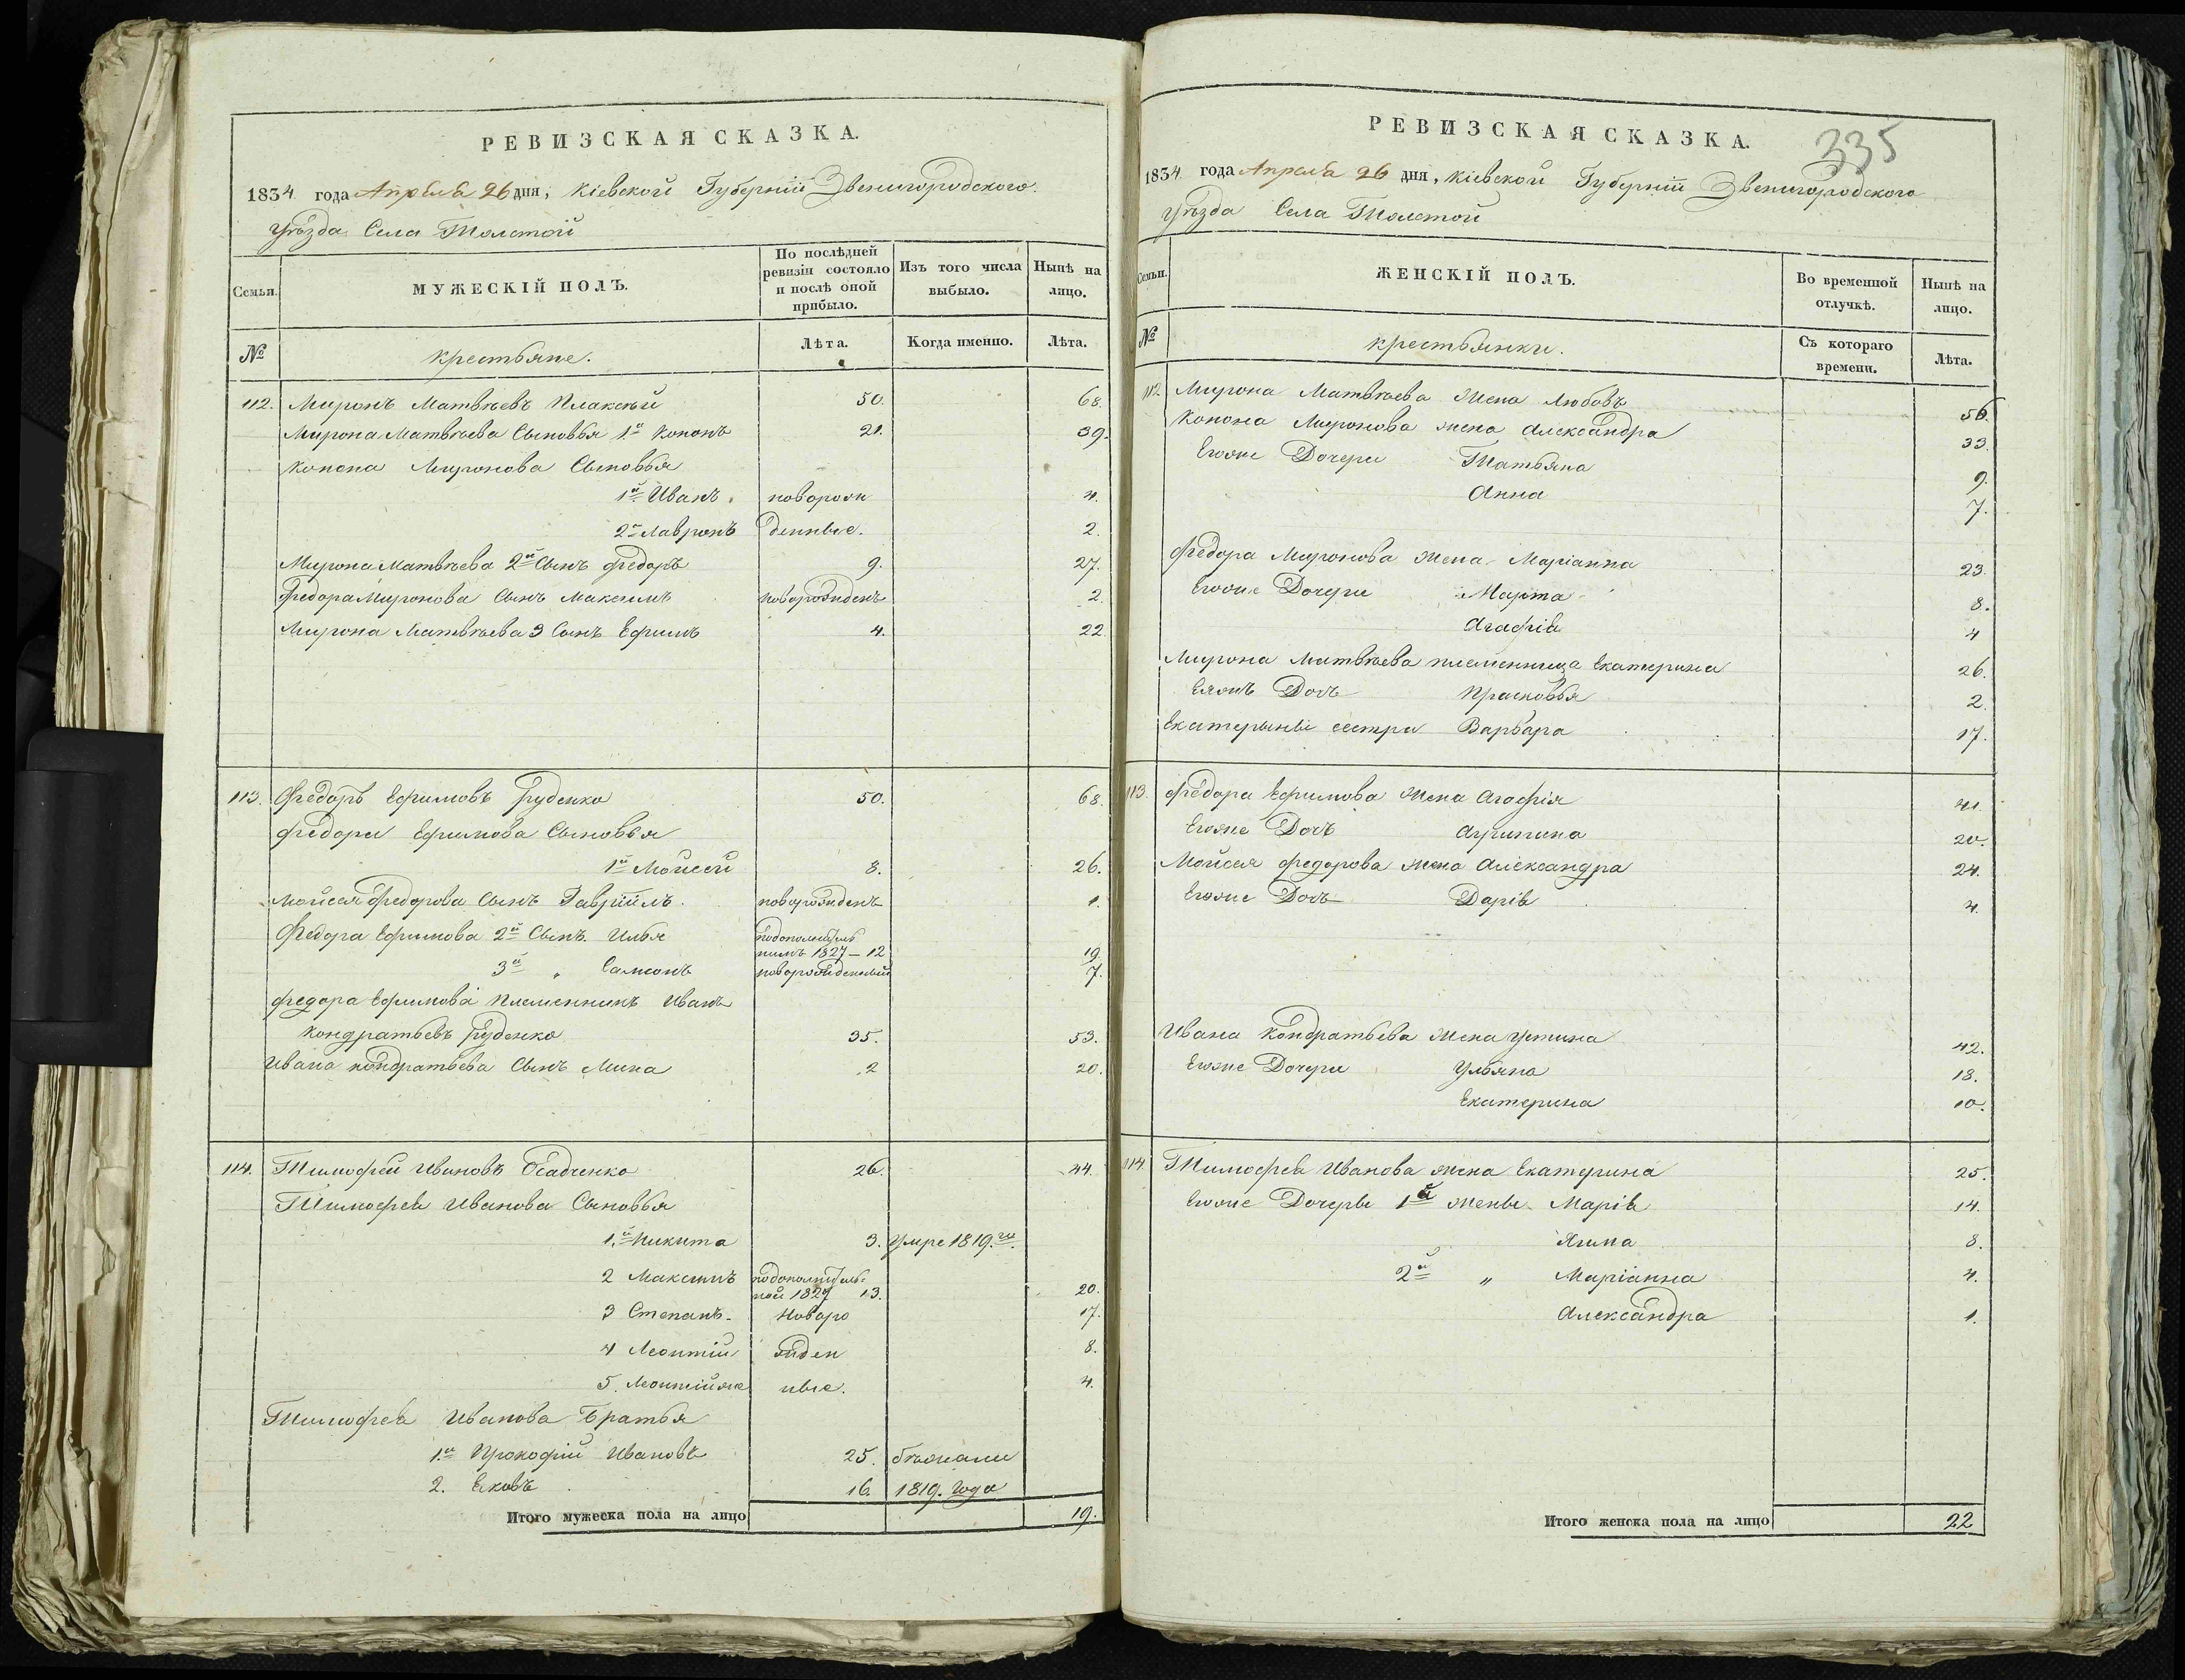 РЕВИЗСКАЯ СКАЗКА.
1834 года Апреля 26 дня, Кіевской Губерніи Звенигородского
уѣзда Села Толстой
Семьи. МУЖЕСКІЙ ПОЛЪ. По послѣдней ревизіи состояло и послѣ оной прибыло. Изъ того числа выбыло. Нынѣ на лицо.
№ крестьяне. Лѣта. Когда именно. Лѣта.
112. Миронъ Матвѣевъ 50. 68.
Мирона Матвѣева Сыновья 1й Кононъ 21. 39.
Конона Миронова Сыновья
1й Иванъ новорож 4.
2й Лавронъ денные. 2.
Мирона Матвѣева 2й Сынъ Федоръ 9. 27.
Федора Миронова Сынъ Максимъ новорожденъ 2.
Мирона Матвѣева 3 Сынъ Ефимъ 4. 22
113. Федоръ Ефимовъ Руденко 50. 68.
Федора Ефимова Сыновья
1й Мойсей 8. 26.
Мойсея Федорова Сынъ Гавріилъ новорожденъ 1.
Федора Ефимова 2й Сынъ Илья 1827 – 12 19.
3й „ Самсонъ новорожденный 7.
Федора Ефимова Племенникъ Иванъ
Кондратьевъ Руденко 35. 53.
Ивана Кондратьева Сынъ Мина 2 20.
114. Тимофей Ивановъ Осадченко 26. 44.
Тимофея Иванова Сыновья
1.й Никита 3. Умре 1819.го
2 Максимъ 1827 13. 20.
3 Степанъ. новоро 17.
4 Леонтій жден 8.
5. Леонтій же ные. 4.
Тимофея Иванова Братья
1.й Прокофій Ивановъ 25. бѣжали
2. Яковъ 16. 1819. года
Итого мужеска пола на лицо 19.
335
РЕВИЗСКАЯ СКАЗКА.
1834 года Апреля 26 дня, Кіевской Губерніи Звенигородского
уѣзда Села Толстой
Семьи. ЖЕНСКІЙ ПОЛЪ. Во временной отлучкѣ. Нынѣ на лицо.
№ крестьянки. Съ котораго времени. Лѣта.
112. Мирона Матвѣева Жена Любовъ 56.
Конона Миронова жена Александра 33.
Егоже Дочери Татьяна 9.
Анна 7.
Федора Миронова Жена Маріанна 23.
Егоже Дочери Марта 8.
Агафія 4
Мирона Матвѣева племенница Екатерина 26.
Еяжъ Дочь Прасковья 2.
Екатерины сестра Варвара 17.
113. Федора Ефимова Жена Агафія 41.
Егоже Дочъ Агрипина 20.
Мойсея Федорова Жена Александра 24.
Егоже Дочъ Дарія 4.
Ивана Кондратьева Жена Устина 42.
Егоже Дочери Ульяна 18.
Екатерина 10.
114. Тимофея Иванова жена Екатерина 25.
Егоже Дочеры 1й Жены Марія 14.
Якима 8.
2й „ Маріанна 4.
Александра 1.
Итого женска пола на лицо 22